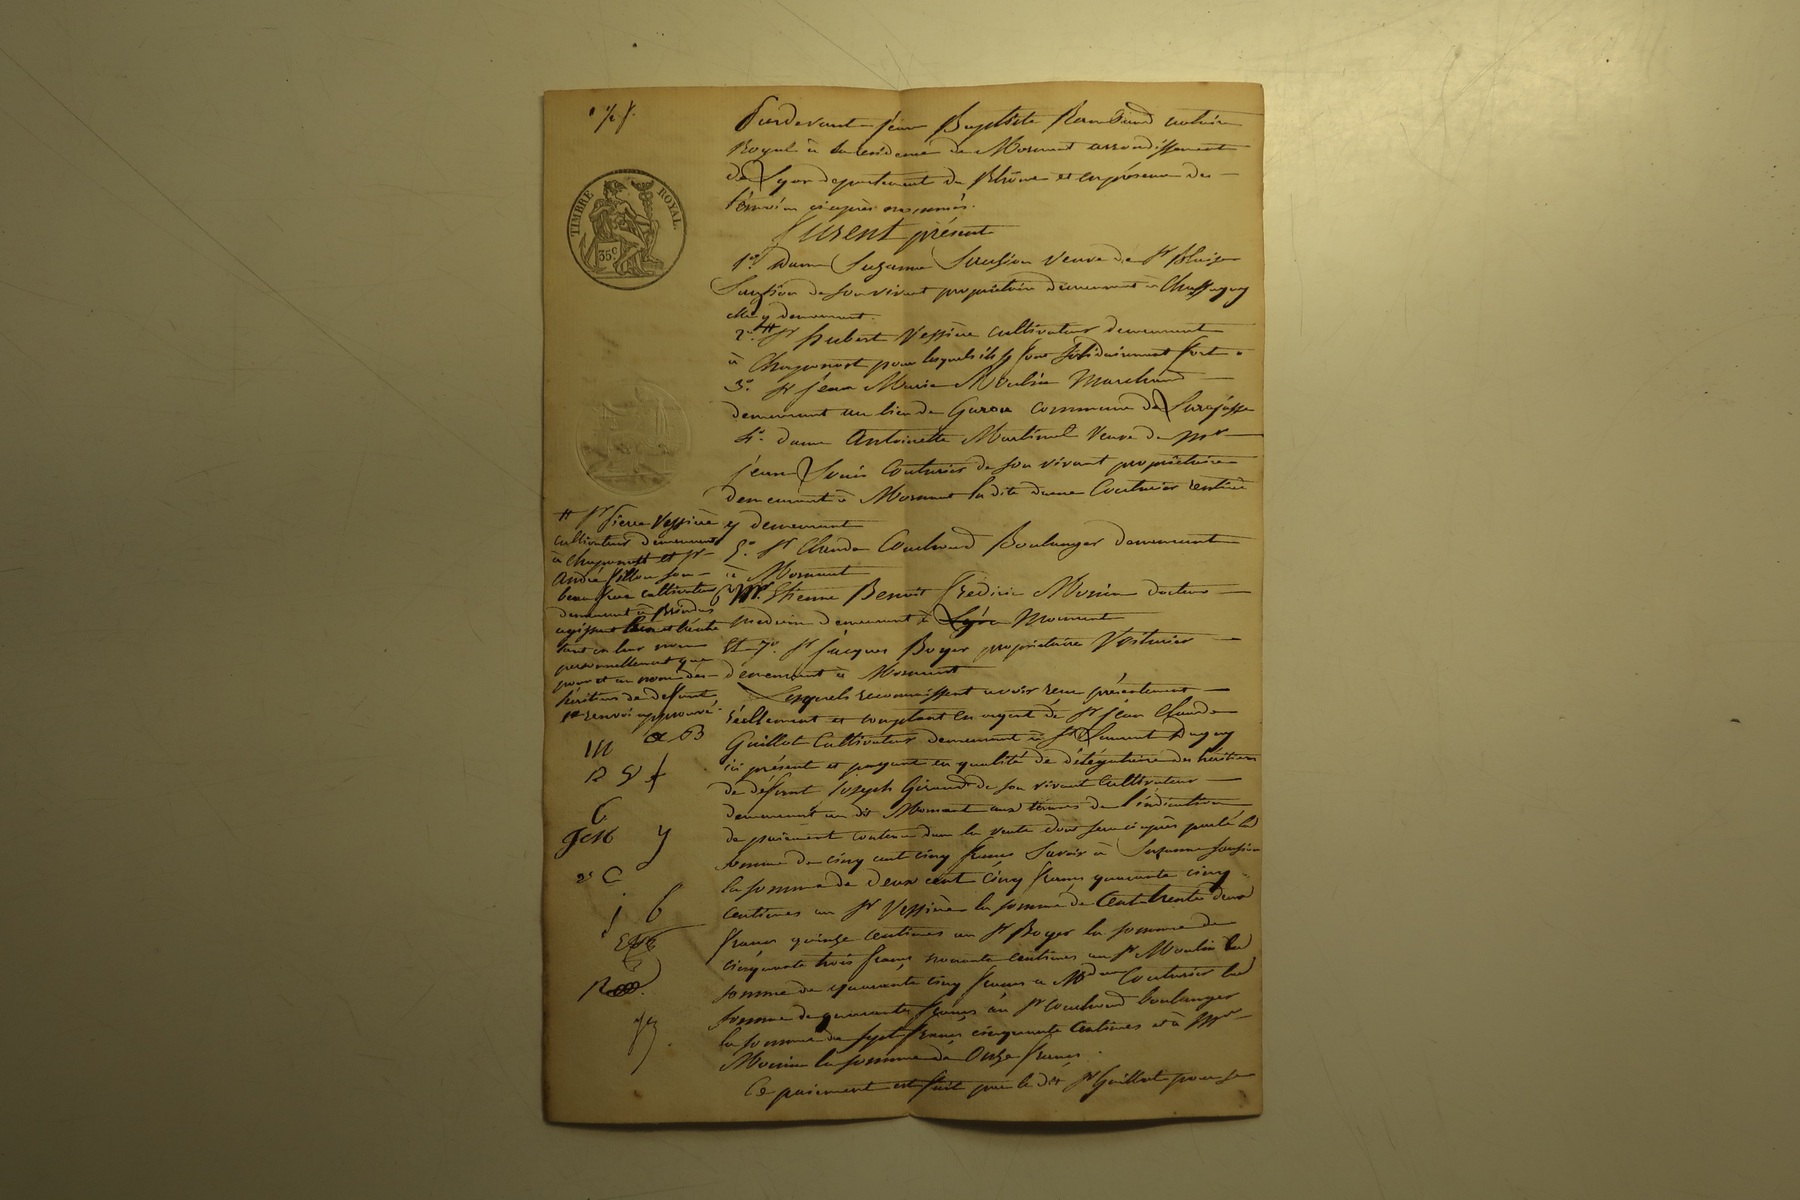 Pardevant Jean Baptiste notaire
Royal à la résidence de Mornant arrondissement
de Lyon département du Rhône et en présence des
témoins ciaprès nommés.
furent présents
TIMBRE ROYAL
35c
1° Dame Suzanne veuve de Sr
de son vivant propriétaire demeurant à Chassagny
elle y demeurant.
2° # Sr hubert Vessière cultivateur demeurant
à Chaponost pour lesquels ils se font solidairement fort
3° Sr Jean Marie Moulin Marchand
demeurant au lieu de commune de Larajasse
4° dame Antoinette Martinel Veuve de Mr
Jean Louis Couturier de son vivant propriétaire
demeurant à Mornant la dite dame Couturier rentière
y demeurant
5° Sr Claude Couchoud Boulanger demeurant
à Mornant
6° Mr Etienne Benoit Frédéric Monin docteur
médecin demeurant à Lyon Mornant
Et 7° Sr Jacques Boyer propriétaire Voiturier
demeurant à Mornant
# Sr Pierre Vessière
cultivateur demeurant
à Chaponost et Sr
André Pillon son
beau frère cultivateur
demeurant à Brindas
agissant
tant en leur nom
personnellement que
pour et au nom des
héritiers de défunte
renvoi approuvé
Lesquels reconnaissent avoir reçu présentement
réellement et comptant en argent de Sr Jean Claude
Guillot Cultivateur demeurant à St Laurent Dagny
ici présent et payant en qualité de délégataire des héritiers
de défunt Joseph Giraud de son vivant Cultivateur
demeurant au dit Mornant aux termes de l'indication
de paiement contenu dans la vente dont sera ciaprès parlé la
somme de cinq cent cinq francs Savoir à Suzanne
la somme de deux cent cinq francs quarante cinq
centimes au Sr Vessière la somme de Cent trente deux
francs quinze centimes au Sr Boyer la somme de
cinquante trois francs centimes au Sr Moulin la
somme de quarante cinq francs à Mdame Couturier la
somme de quarante francs au Sr Couchoud boulanger
la somme de sept francs cinquante Centimes et à Mr
Monin la somme de Onze francs.
Ce paiement est fait par le dit Sr Guillot pour se